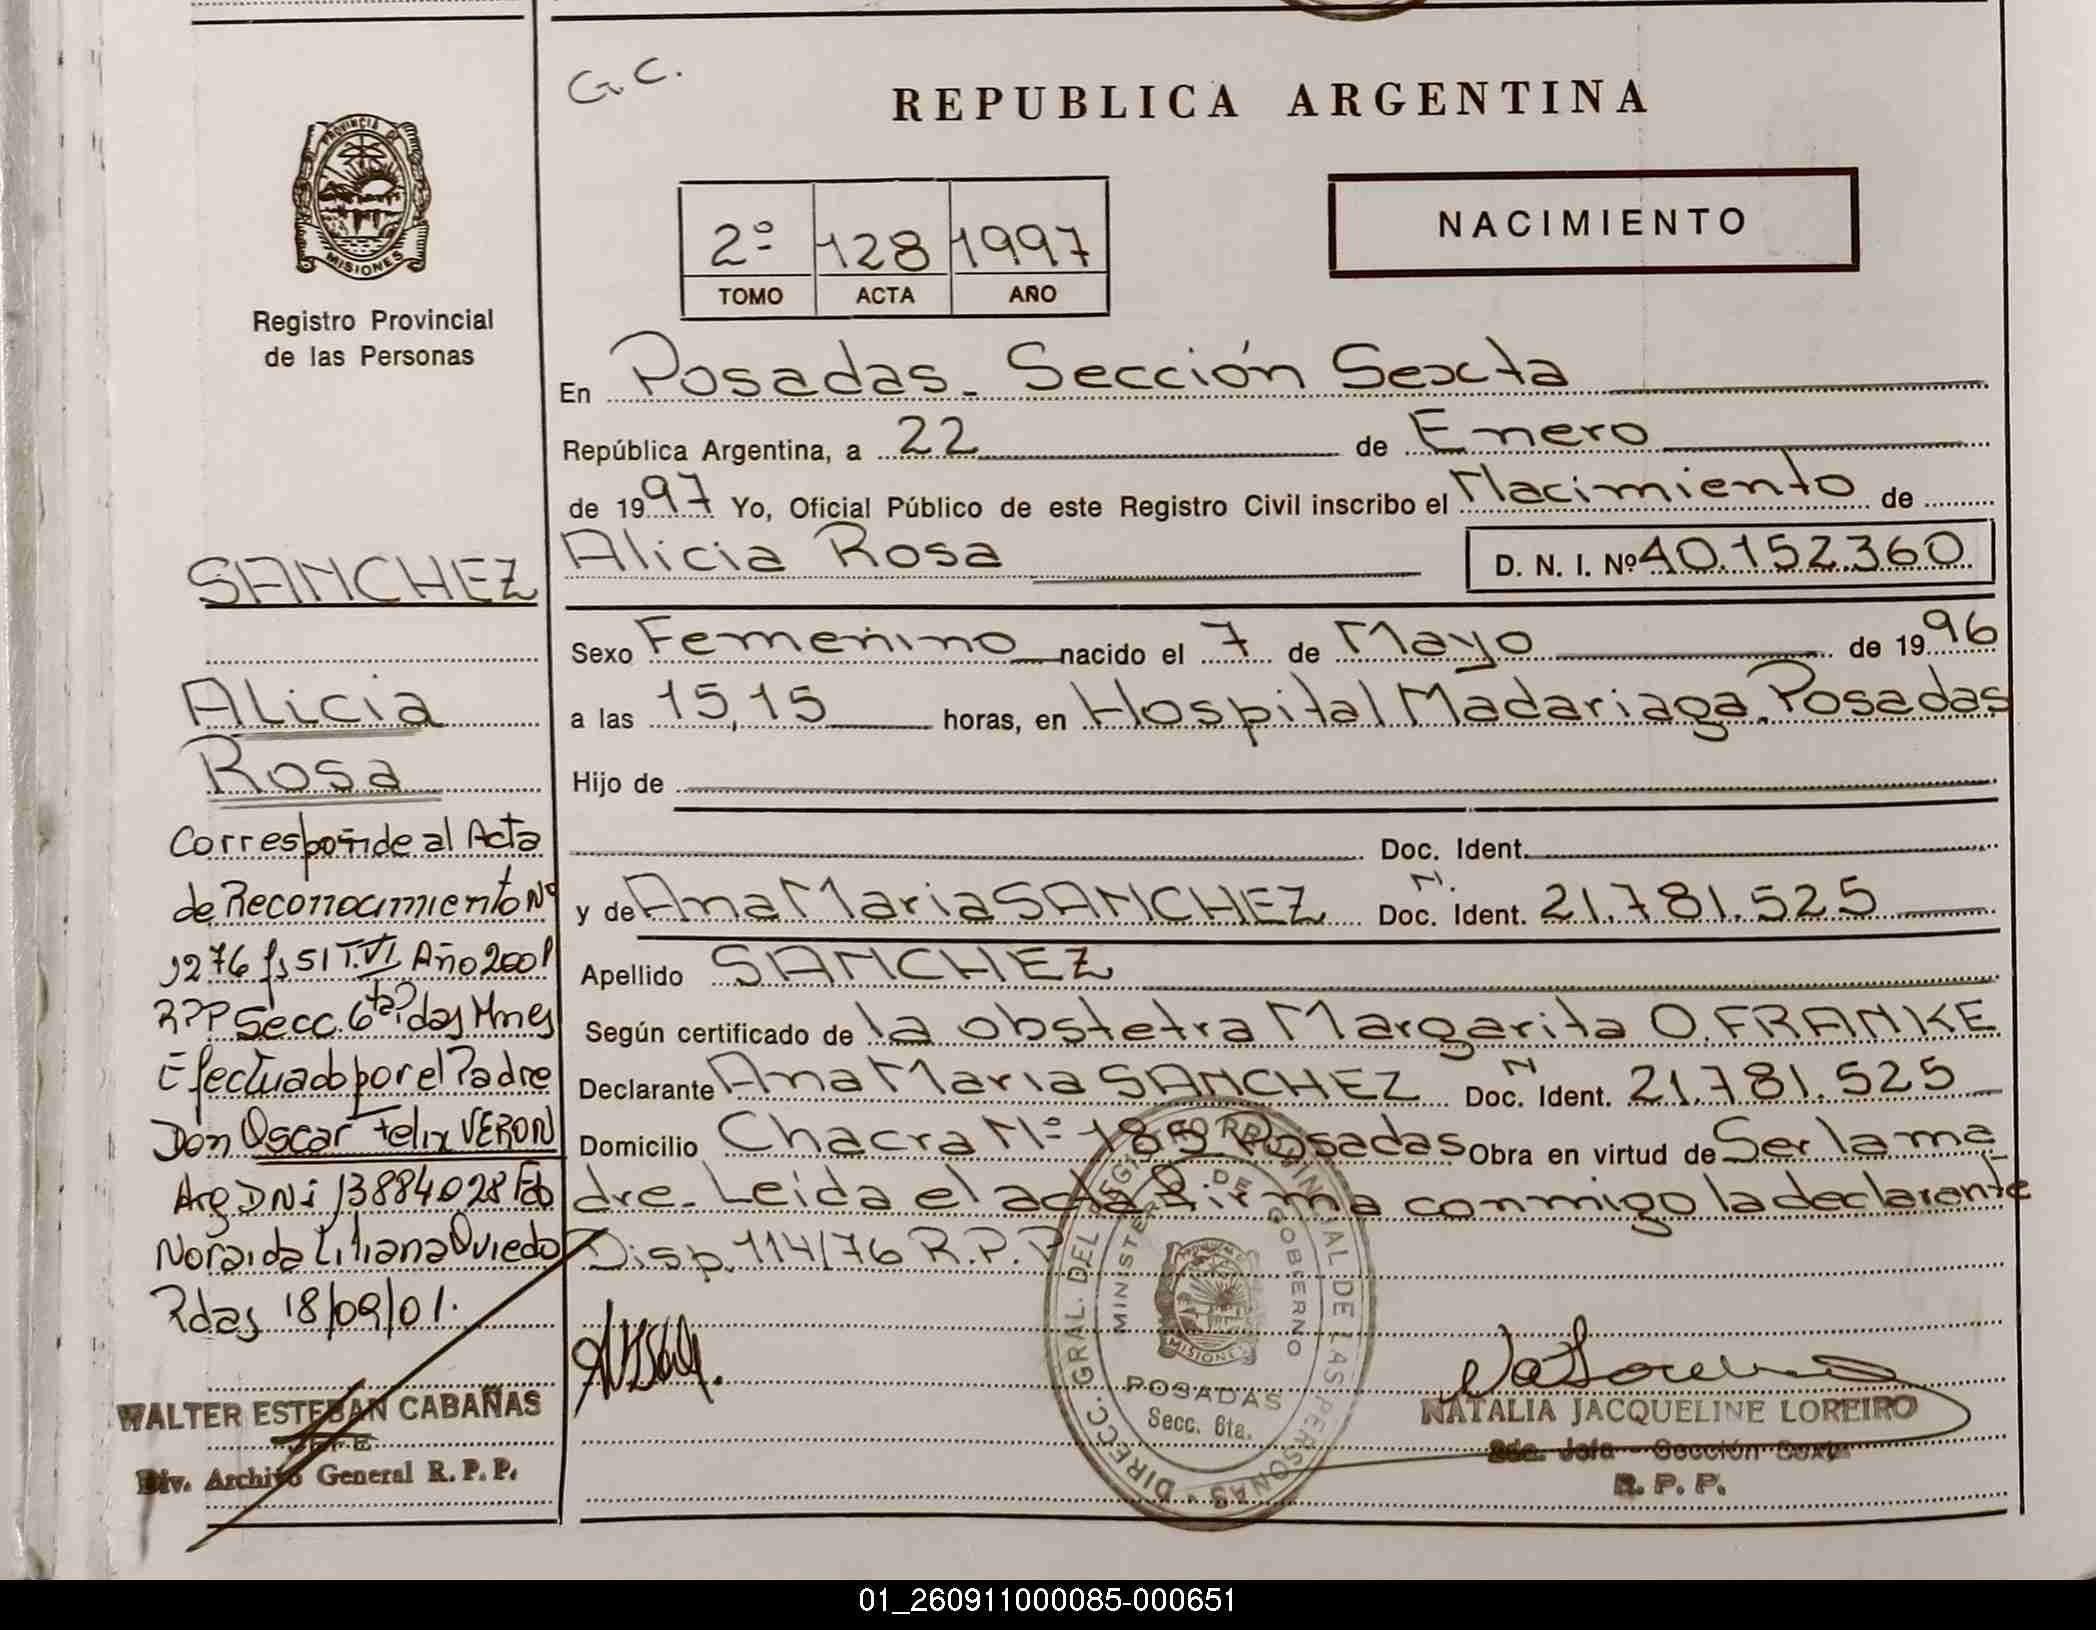 G.C.
REPUBLICA ARGENTINA
PROVINCIA DE
MISIONES
Registro Provincial
de las Personas
2º 128 1997
TOMO ACTA AÑO
NACIMIENTO
En Posadas. Sección Sexta
República Argentina, a 22 de Enero
de 1997 Yo, Oficial Público de este Registro Civil inscribo el Nacimiento de
Alicia Rosa D. N. I. Nº 40.152.360
Sexo Femenino nacido el 7 de Mayo de 1996
a las 15,15 horas, en Hospital Madariaga. Posadas
Hijo de
Doc. Ident.
y de Ana Maria SANCHEZ Doc. N. Ident. 21.781.525
Apellido SANCHEZ
Según certificado de la obstetra Margarita O. FRANKE
Declarante Ana Maria SANCHEZ Doc. N Ident. 21.781.525
Domicilio Chacra Nº 185 Posadas Obra en virtud de Ser la ma
dre. Leida el acta firma conmigo la declarante
Disp. 114/76 R.P.P
SANCHEZ
Alicia
Rosa
Corresponde al Acta
de Reconocimiento Nº
1276 fs 51 T.VI Año 2001
RPP Secc. 6ta Pdas Mnes
Efectuado por el Padre
Don Oscar Felix VERON
Arg DNi 13884028 Fdo
Noraida Liliana Oviedo
Pdas 18/09/01.
WALTER ESTEBAN CABAÑAS
JEFE
Div. Archivo General R. P. P.
DIRECC. GRAL. DEL REGISTRO PROVINCIAL DE LAS PERSONAS
MINISTERIO DE GOBIERNO
MISIONES
POSADAS
Secc. 6ta.
NATALIA JACQUELINE LOREIRO
2da. Jefa - Sección Sexta
R. P. P.
01_260911000085-000651